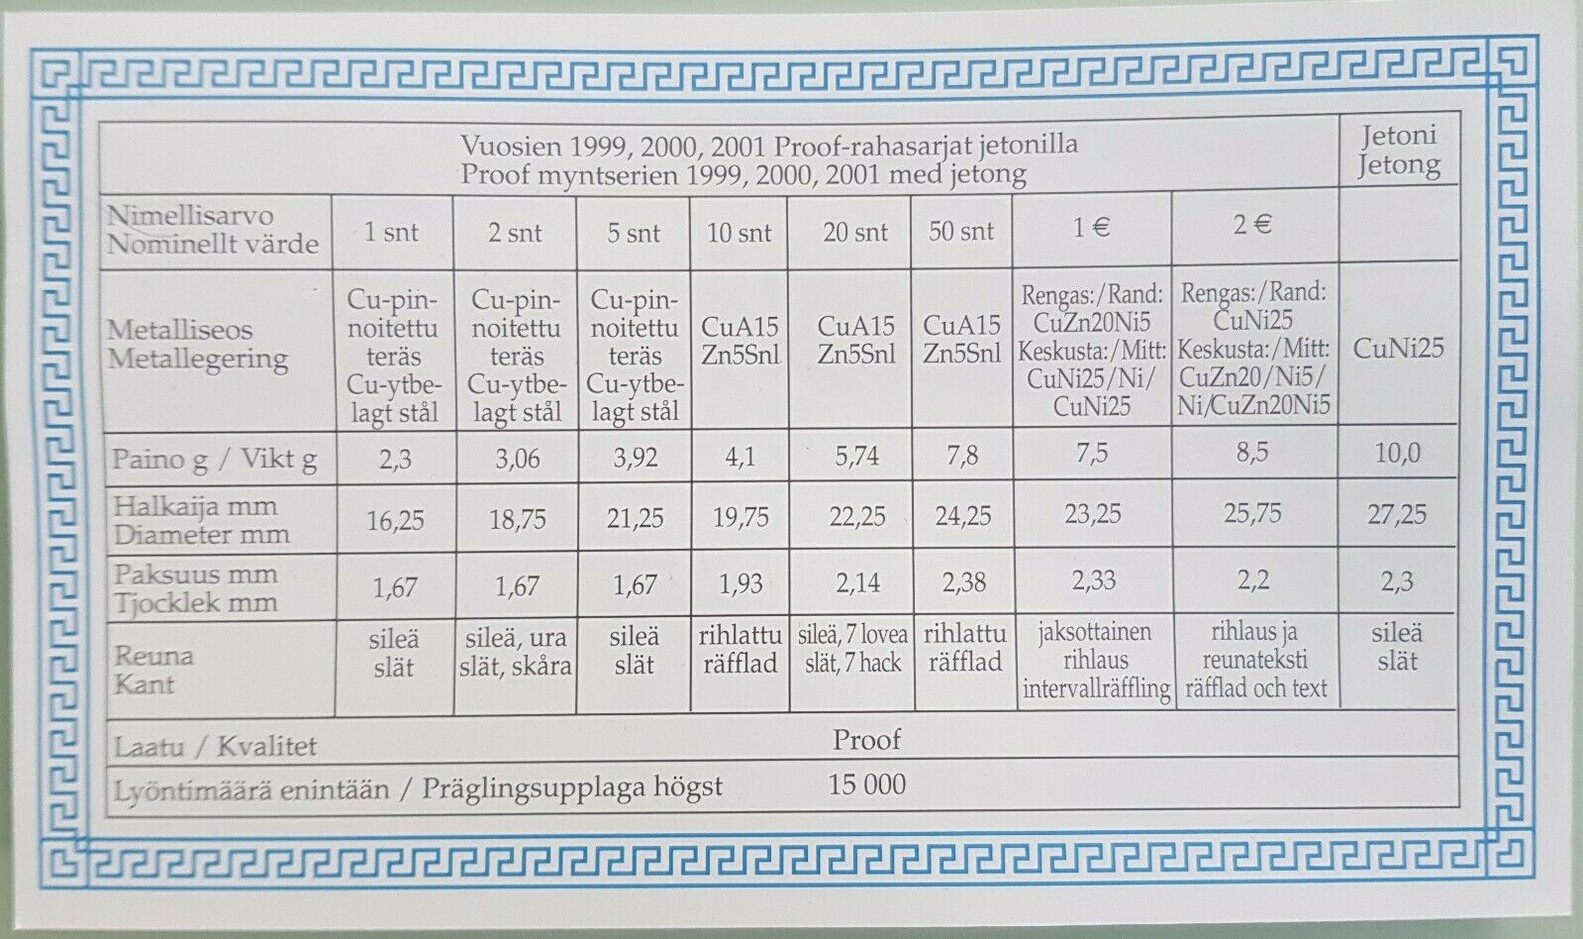 Vuosien 1999, 2000, 2001 Proof-rahasarjat jetonilla
Proof myntserien 1999, 2000, 2001 med jetong
Jetoni
Jetong
Nimellisarvo
Nominellt värde
1 snt
2 snt
5 snt
10 snt
20 snt
50 snt
1 €
2 €
Metalliseos
Metallegering
Cu-pin-
noitettu
teräs
Cu-ytbe-
lagt stål
Cu-pin-
noitettu
teräs
Cu-ytbe-
lagt stål
Cu-pin-
noitettu
teräs
Cu-ytbe-
lagt stål
CuA15
Zn5Snl
CuA15
Zn5Snl
CuA15
Zn5Snl
Rengas:/Rand:
CuZn20Ni5
Keskusta:/Mitt:
CuNi25/Ni/
CuNi25
Rengas:/Rand:
CuNi25
Keskusta:/Mitt:
CuZn20/Ni5/
Ni/CuZn20Ni5
CuNi25
Paino g / Vikt g
2,3
3,06
3,92
4,1
5,74
7,8
7,5
8,5
10,0
Halkaija mm
Diameter mm
16,25
18,75
21,25
19,75
22,25
24,25
23,25
25,75
27,25
Paksuus mm
Tjocklek mm
1,67
1,67
1,67
1,93
2,14
2,38
2,33
2,2
2,3
Reuna
Kant
sileä
slät
sileä, ura
slät, skåra
sileä
slät
rihlattu
räfflad
sileä, 7 lovea
slät, 7 hack
rihlattu
räfflad
jaksottainen
rihlaus
intervallräffling
rihlaus ja
reunateksti
räfflad och text
sileä
slät
Laatu / Kvalitet
Proof
Lyöntimäärä enintään / Präglingsupplaga högst
15 000